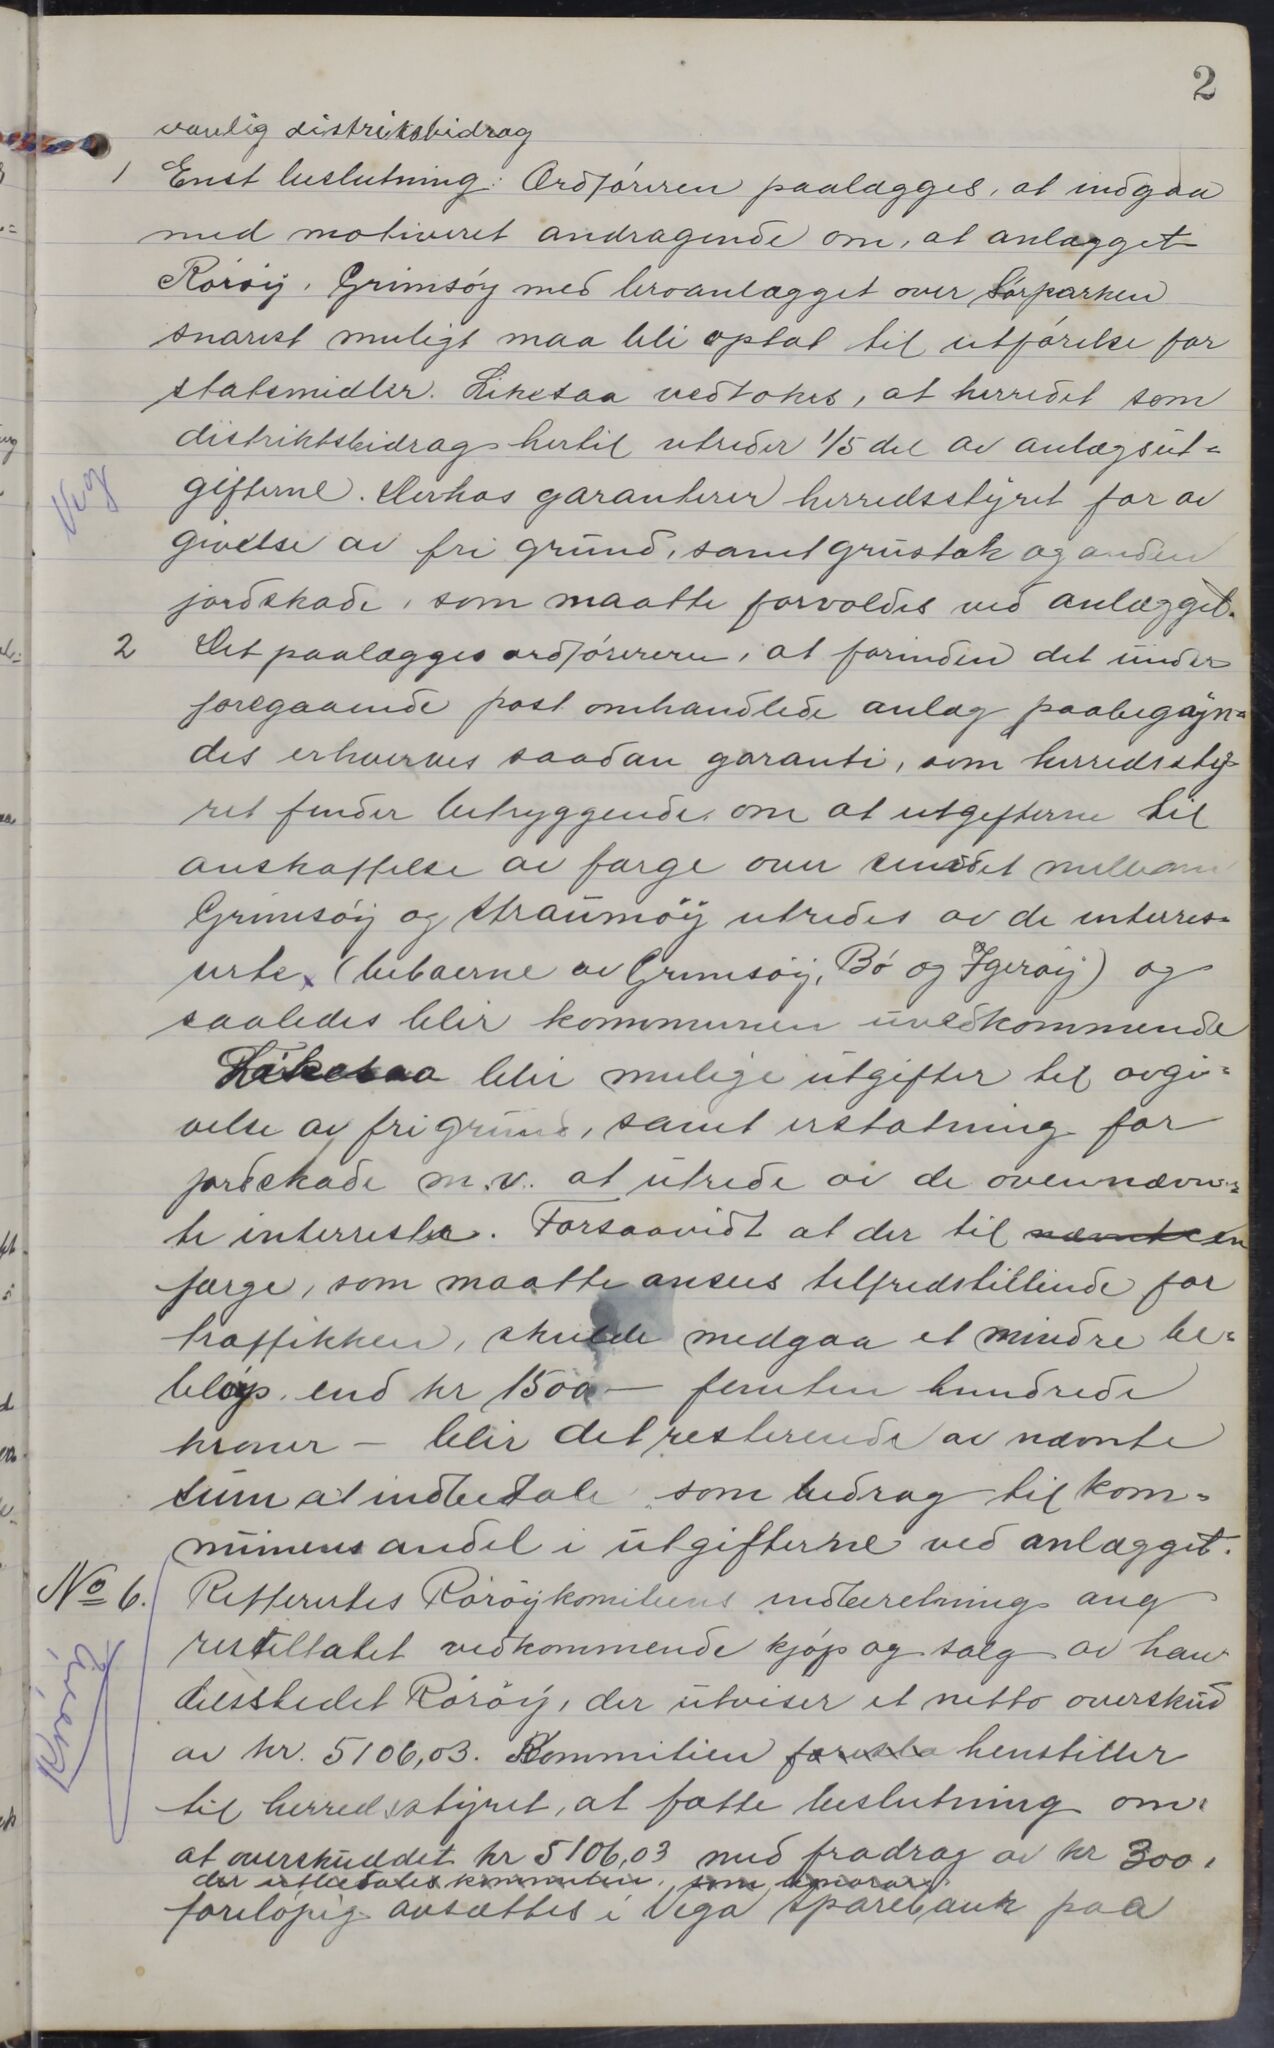 2
vanlig distriktsbidrag
1 Enst beslutning: Ordföreren paalægges, at indgaa
med motiveret andragende om, at anlægget
Rörøy, Grimsöy med broanlægget over
snarest muligt maa bli optat til utförelse for
statsmidler. Likesaa vedtokes, at herredet som
distriktsbidrag hertil utreder 1/5 del av anlægsut-
gifterne. Derhos garanterer herredsstyret for av
givelse av fri grund, samt grustak og anden
jordskade, som maatte forvoldes ved anlægget.
Veg
2 Det paalægges ordföreren, at forinden det under
foregaaende post omhandlede anlæg paabegyn-
des erhverves saadan garanti, som herredssty-
ret finder betryggende om at utgifterne til
anskaffelse av færge over sundet mellem
Grimsöy og Straumöy utredes av de interres-
serte (beboerne av Grimsöy, Bö og Ygeröy) og
saaledes blir kommunen uvedkommende
Likesaa blir mulige utgifter til avgi-
velse av fri grund, samt erstatning for
jordskade m.v. at utrede av de ovennævn-
te interreste. Forsaavidt at der til nævnte en
færge, som maatte ansees tilfredstillende for
traffikken, skulde medgaa et mindre be-
belöp end kr 1500 — femten hundrede
kroner — blir det resterende av nævnte
sum at indbetale som bidrag til kom-
munens andel i utgifterne ved anlægget.
No 6. Refferertes Röröykomiteens indberetning ang
resultatet vedkommende kjöp og salg av han
delsstedet Röröy, der utviser et netto overskud
av kr. 5106,03. Kommitien henstiller
til herredsstyret, at fatte beslutning om,
at overskuddet kr 5106,03 med fradrag av kr 300,
der utbetales kommiteen, som
forelöpig avsættes i Vega Sparebank paa
Röröy